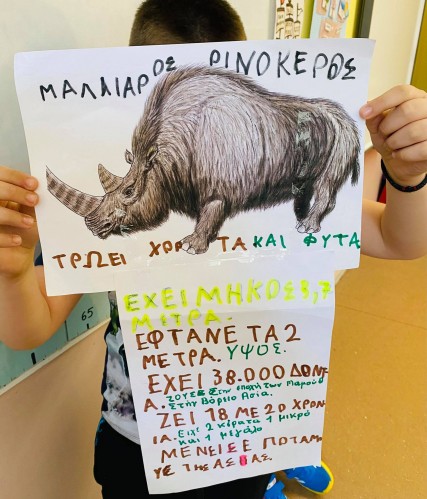 ΜΑΛΛΙΑΡΟΣ ΡΙΝΟΚΕΡΟΣ
ΤΡΩΕΙ ΧΟΡΤΑ ΚΑΙ ΦΥΤΑ
ΕΧΕΙ ΜΗΚΟΣ 3,7
ΜΙΤΡΑ.
ΕΦΤΑΝΕ ΤΑ 2
ΜΕΤΡΑ. ΥΨΟΣ.
ΕΧΕΙ 38.000 ΔΟΝΤΙ
Α. ζουσε Στην εποχή των Μαμούθ
Στην Βόρειο Ασία.
ΖΕΙ 18 ΜΕ 20 ΧΡΟΝ
ΙΑ. Είχε 2 κέρατα 1 μικρό
και 1 μεγάλο
ΜΕΝΕΙ ΣΕ ΠΟΤΑΜ
ΥΣ ΤΗΣ ΑΣΙΑΣ.
65